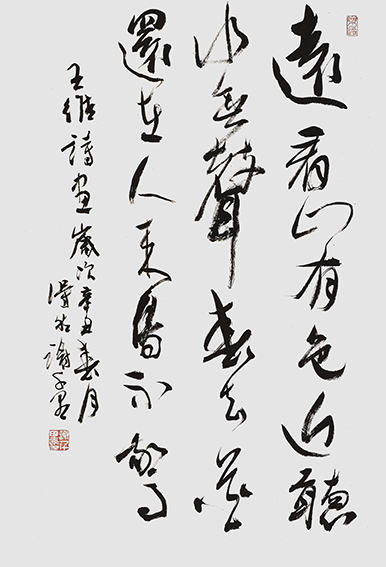 遠看山有色近聽
水無聲春去花
還在人来鳥不驚
王維詩畫歲次辛丑春月